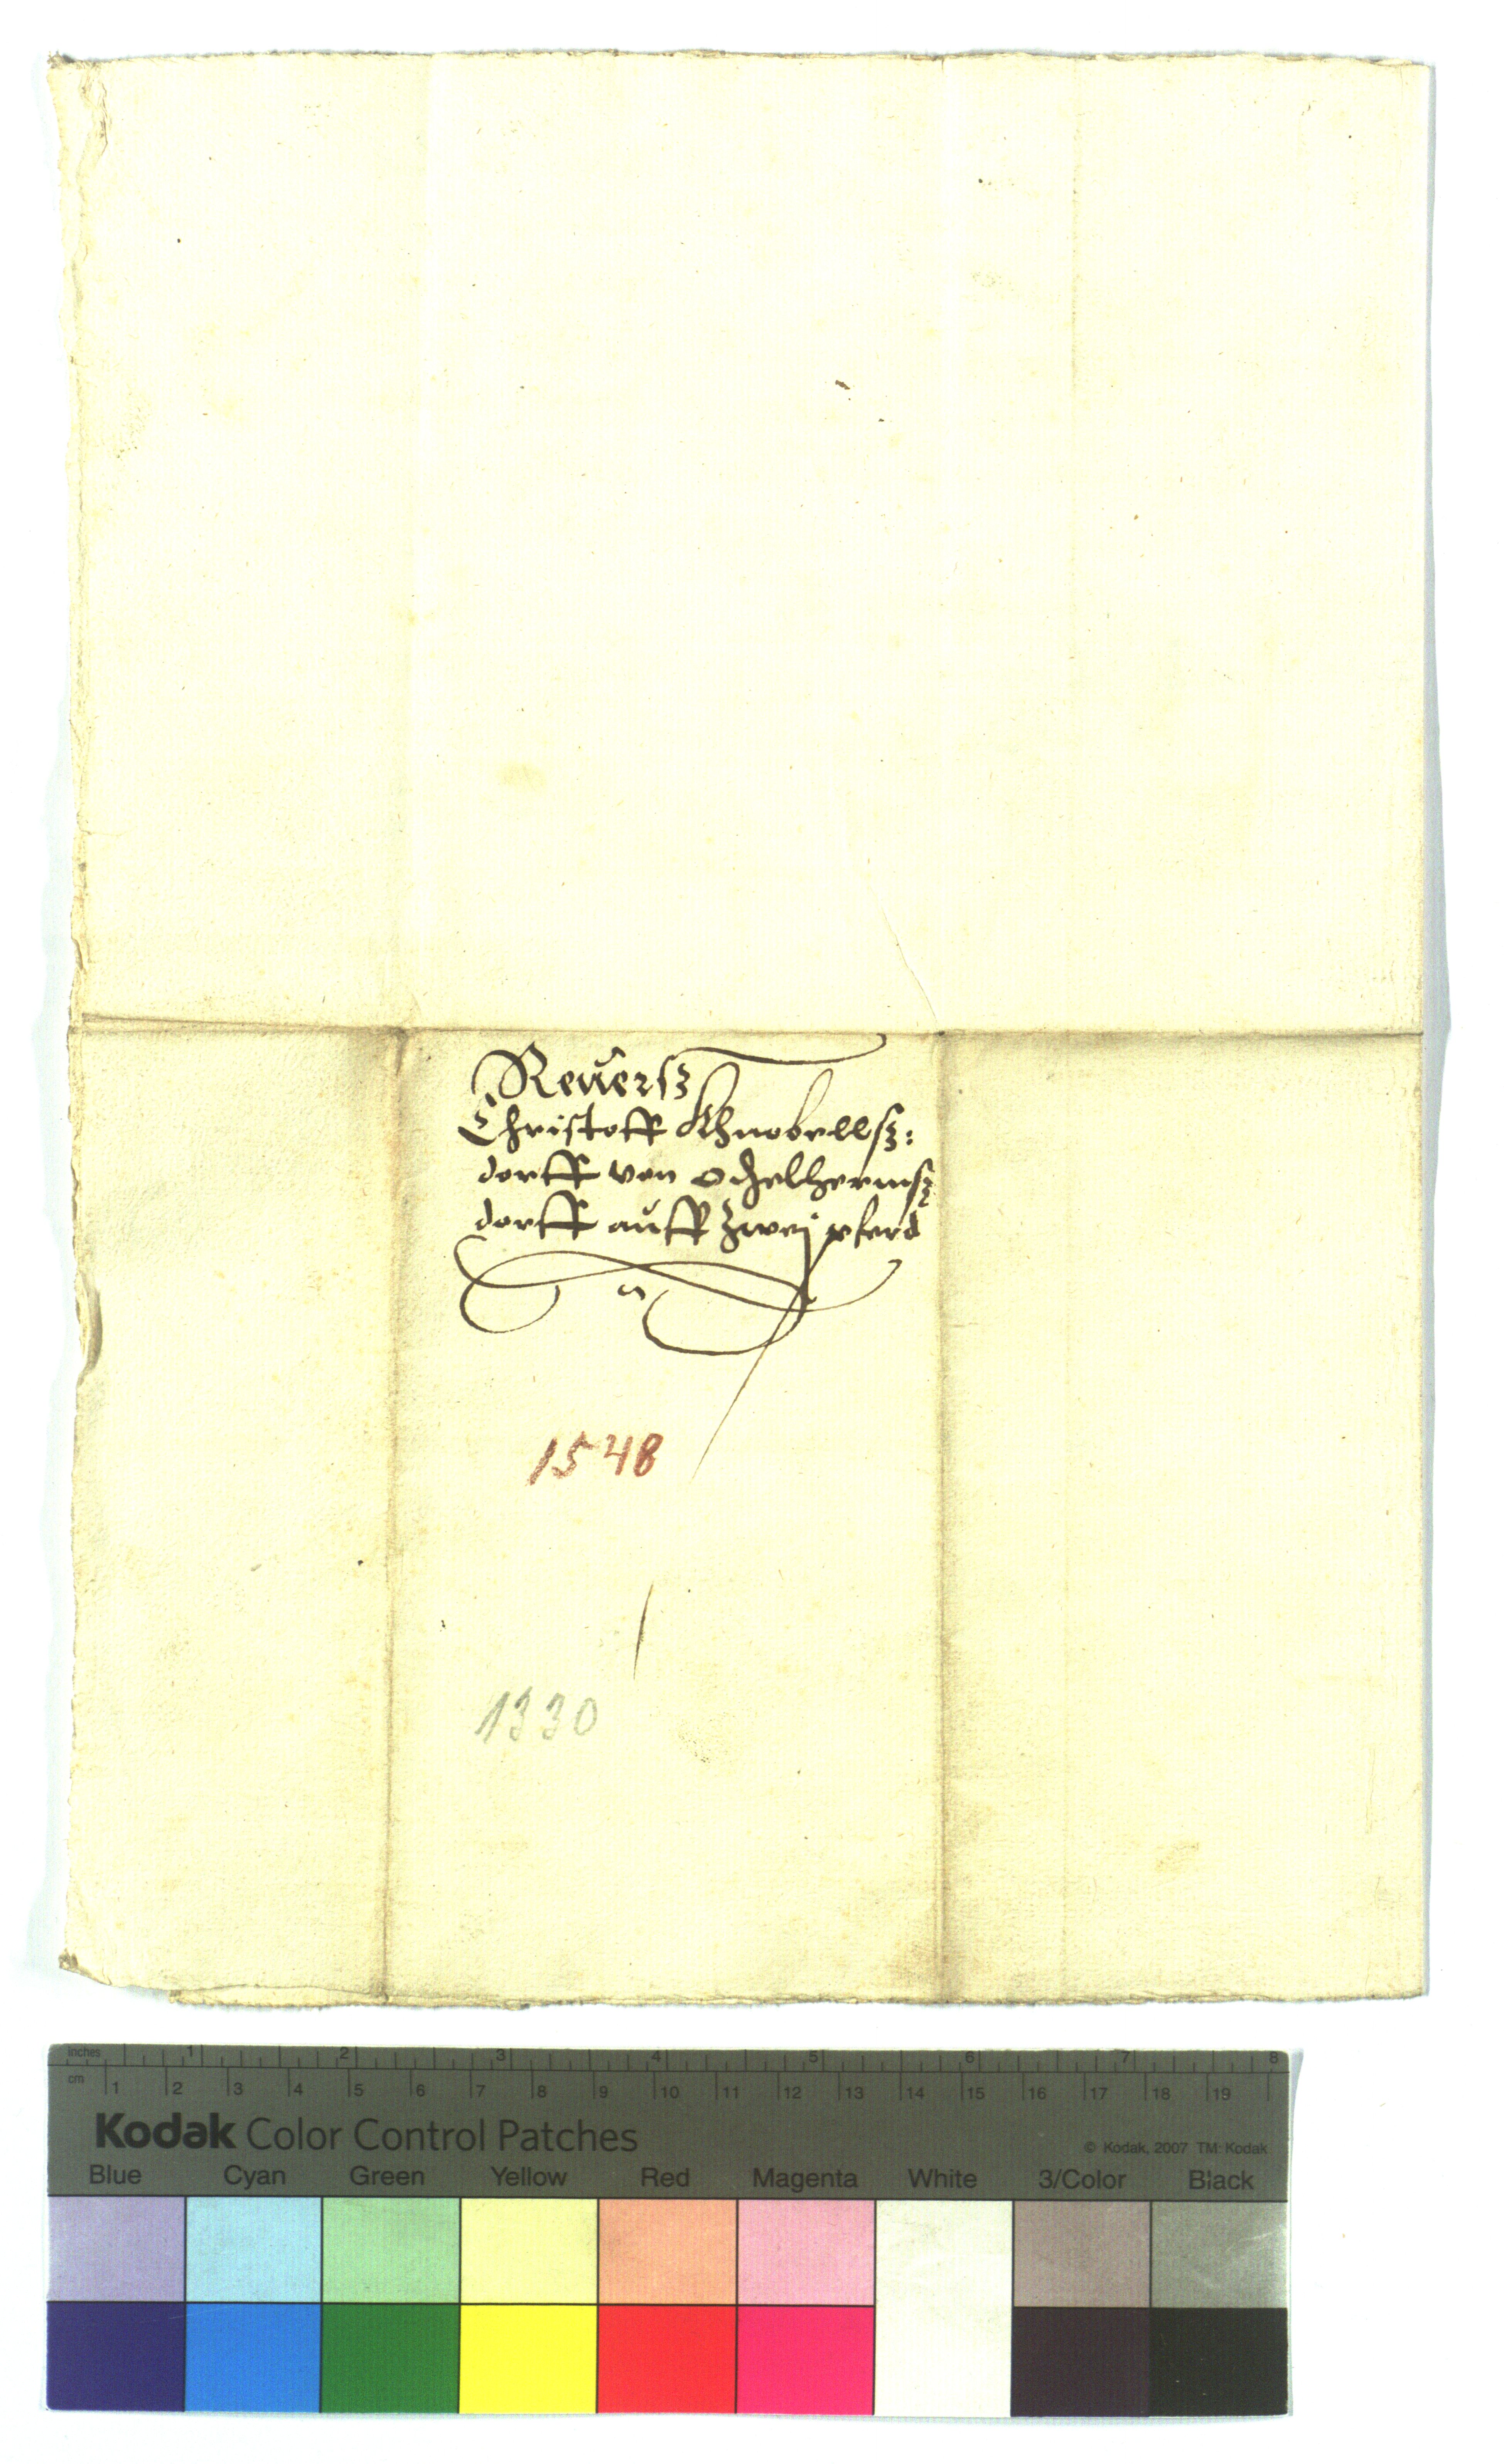 Reuersz
Christoff Khnobellsz:
dorff von Ochelhermsz
dorff auff zwej pferd
1548
1330
inches 1 2 3 4 5 6 7 8
cm 1 2 3 4 5 6 7 8 9 10 11 12 13 14 15 16 17 18 19
Kodak Color Control Patches
© Kodak, 2007 TM: Kodak
Blue Cyan Green Yellow Red Magenta White 3/Color Black